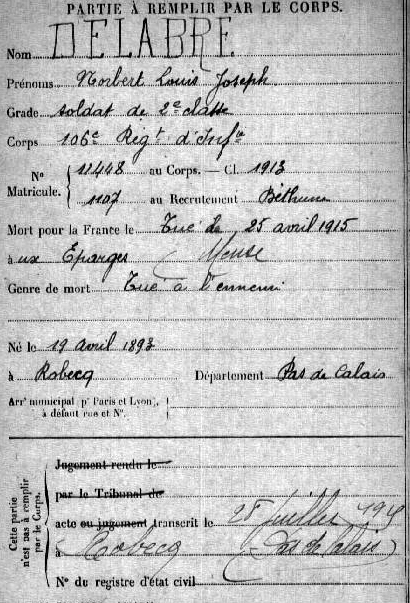 PARTIE À REMPLIR PAR LE CORPS.
Nom DELABRE
Prénoms Norbert Louis Joseph
Grade soldat de 2e classe
Corps 106e Régt d'Infie
No Matricule. 11448 au Corps. — Cl. 1913
1107 au Recrutement Béthune
Mort pour la France le Tué le 25 avril 1915
à ux Eparges Meuse
Genre de mort Tué à l'ennemi
Né le 19 avril 1893
à Robecq Département Pas de Calais
Arrt municipal (pr Paris et Lyon),
à défaut rue et No.
Cette partie n'est pas à remplir par le Corps.
Jugement rendu le
par le Tribunal de
acte ou jugement transcrit le juillet
à Robecq (Pas de Calais)
No du registre d'état civil